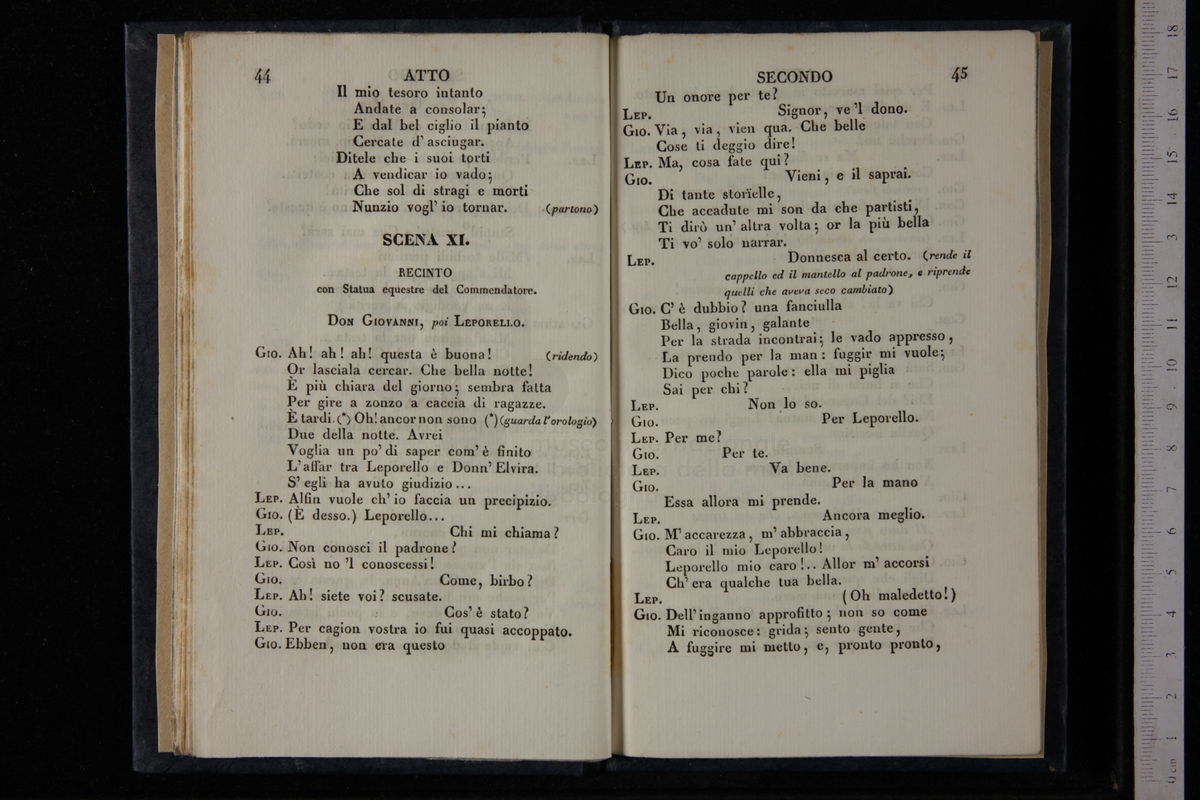 44 ATTO
Il mio tesoro intanto
Andate a consolar;
E dal bel ciglio il pianto
Cercate d' asciugar.
Ditele che i suoi torti
A vendicar io vado;
Che sol di stragi e morti
Nunzio vogl' io tornar. (partono)
SCENA XI.
RECINTO
con Statua equestre del Commendatore.
DON GIOVANNI, poi LEPORELLO.
GIO. Ah! ah! ah! questa è buona! (ridendo)
Or lasciala cercar. Che bella notte!
È più chiara del giorno; sembra fatta
Per gire a zonzo a caccia di ragazze.
È tardi. (*) Oh! ancor non sono (*) (guarda l'orologio)
Due della notte. Avrei
Voglia un po' di saper com' è finito
L'affar tra Leporello e Donn' Elvira.
S' egli ha avuto giudizio...
LEP. Alfin vuole ch' io faccia un precipizio.
GIO. (È desso.) Leporello...
LEP. Chi mi chiama?
GIO. Non conosci il padrone?
LEP. Così no 'l conoscessi!
GIO. Come, birbo?
LEP. Ah! siete voi? scusate.
GIO. Cos' è stato?
LEP. Per cagion vostra io fui quasi accoppato.
GIO. Ebben, non era questo
SECONDO 45
Un onore per te?
LEP. Signor, ve 'l dono.
GIO. Via, via, vien qua. Che belle
Cose ti deggio dire!
LEP. Ma, cosa fate qui?
GIO. Vieni, e il saprai.
Di tante storïelle,
Che accadute mi son da che partisti,
Ti dirò un' altra volta; or la più bella
Ti vo' solo narrar.
LEP. Donnesca al certo. (rende il
cappello ed il mantello al padrone, e riprende
quelli che aveva seco cambiato)
GIO. C' è dubbio? una fanciulla
Bella, giovin, galante
Per la strada incontrai; le vado appresso,
La prendo per la man: fuggir mi vuole;
Dico poche parole: ella mi piglia
Sai per chi?
LEP. Non lo so.
GIO. Per Leporello.
LEP. Per me?
GIO. Per te.
LEP. Va bene.
GIO. Per la mano
Essa allora mi prende.
LEP. Ancora meglio.
GIO. M' accarezza, m' abbraccia,
Caro il mio Leporello!
Leporello mio caro!.. Allor m' accorsi
Ch' era qualche tua bella.
LEP. (Oh maledetto!)
GIO. Dell' inganno approfitto; non so come
Mi riconosce: grida; sento gente,
A fuggire mi metto, e, pronto pronto,
0 cm 1 2 3 4 5 6 7 8 9 10 11 12 13 14 15 16 17 18